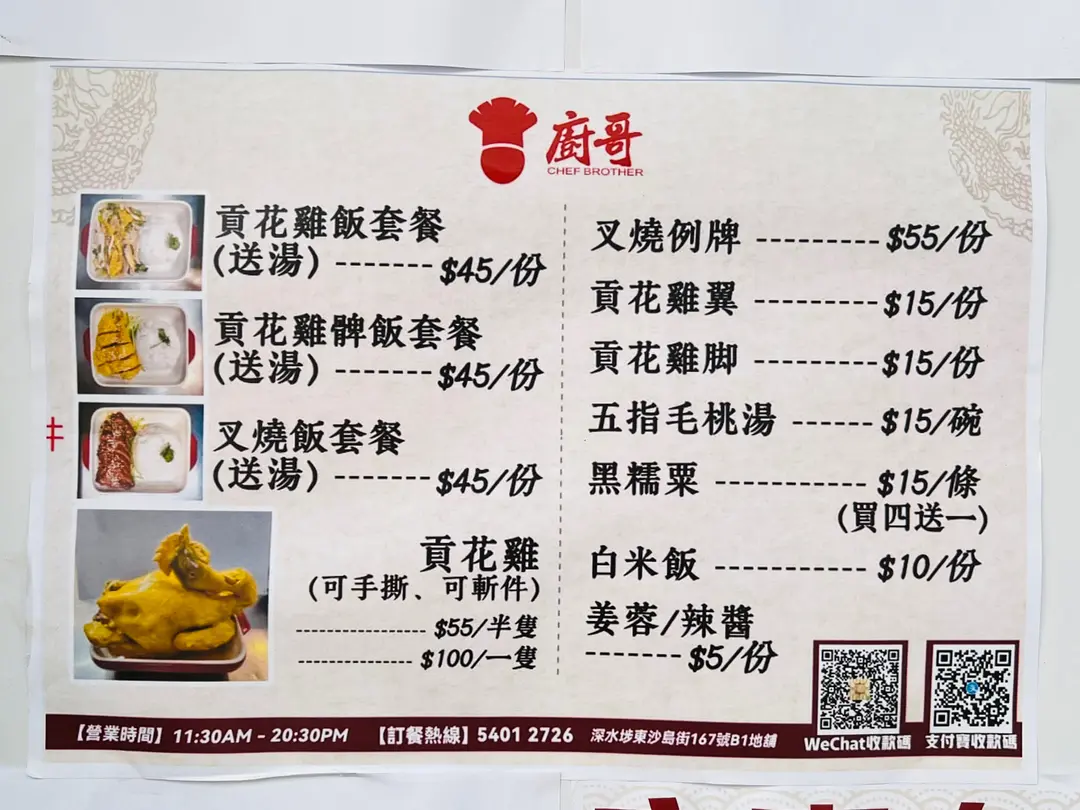 廚哥
CHEF BROTHER
貢花雞飯套餐
(送湯) ------- $45/份
貢花雞髀飯套餐
(送湯) ------- $45/份
叉燒飯套餐
(送湯) ------- $45/份
貢花雞
(可手撕、可斬件)
------------------ $55/半隻
---------------- $100/一隻
叉燒例牌 --------- $55/份
貢花雞翼 --------- $15/份
貢花雞脚 --------- $15/份
五指毛桃湯 ------ $15/碗
黑糯粟 ----------- $15/條
(買四送一)
白米飯 ----------- $10/份
姜蓉/辣醬
------- $5/份
【營業時間】 11:30AM - 20:30PM 【訂餐熱線】 5401 2726 深水埗東沙島街167號B1地舖
WeChat收款碼 支付寶收款碼